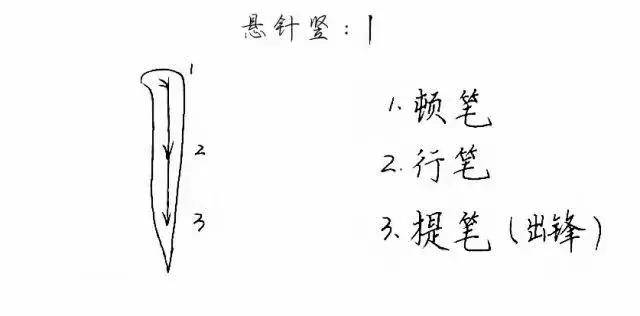 悬针竖：丨
1
2
3
1.顿笔
2.行笔
3.提笔（出锋）